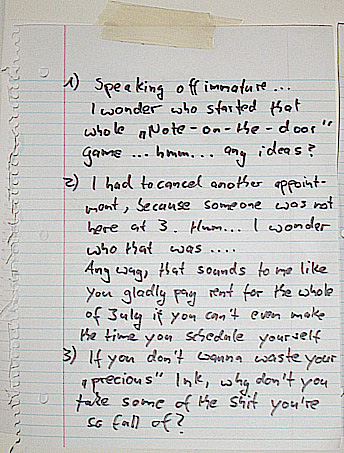 1) Speaking off immature ...
I wonder who started that
whole „Note-on-the-door"
game ... hmm... any ideas?
2) I had to cancel another appoint-
ment, because someone was not
here at 3. Hmm... I wonder
who that was ....
Anyway, that sounds to me like
you gladly pay rent for the whole
of July if you can't even make
the time you schedule yourself
3) If you don't wanna waste your
„precious" Ink, why don't you
take some of the shit you're
so full of?